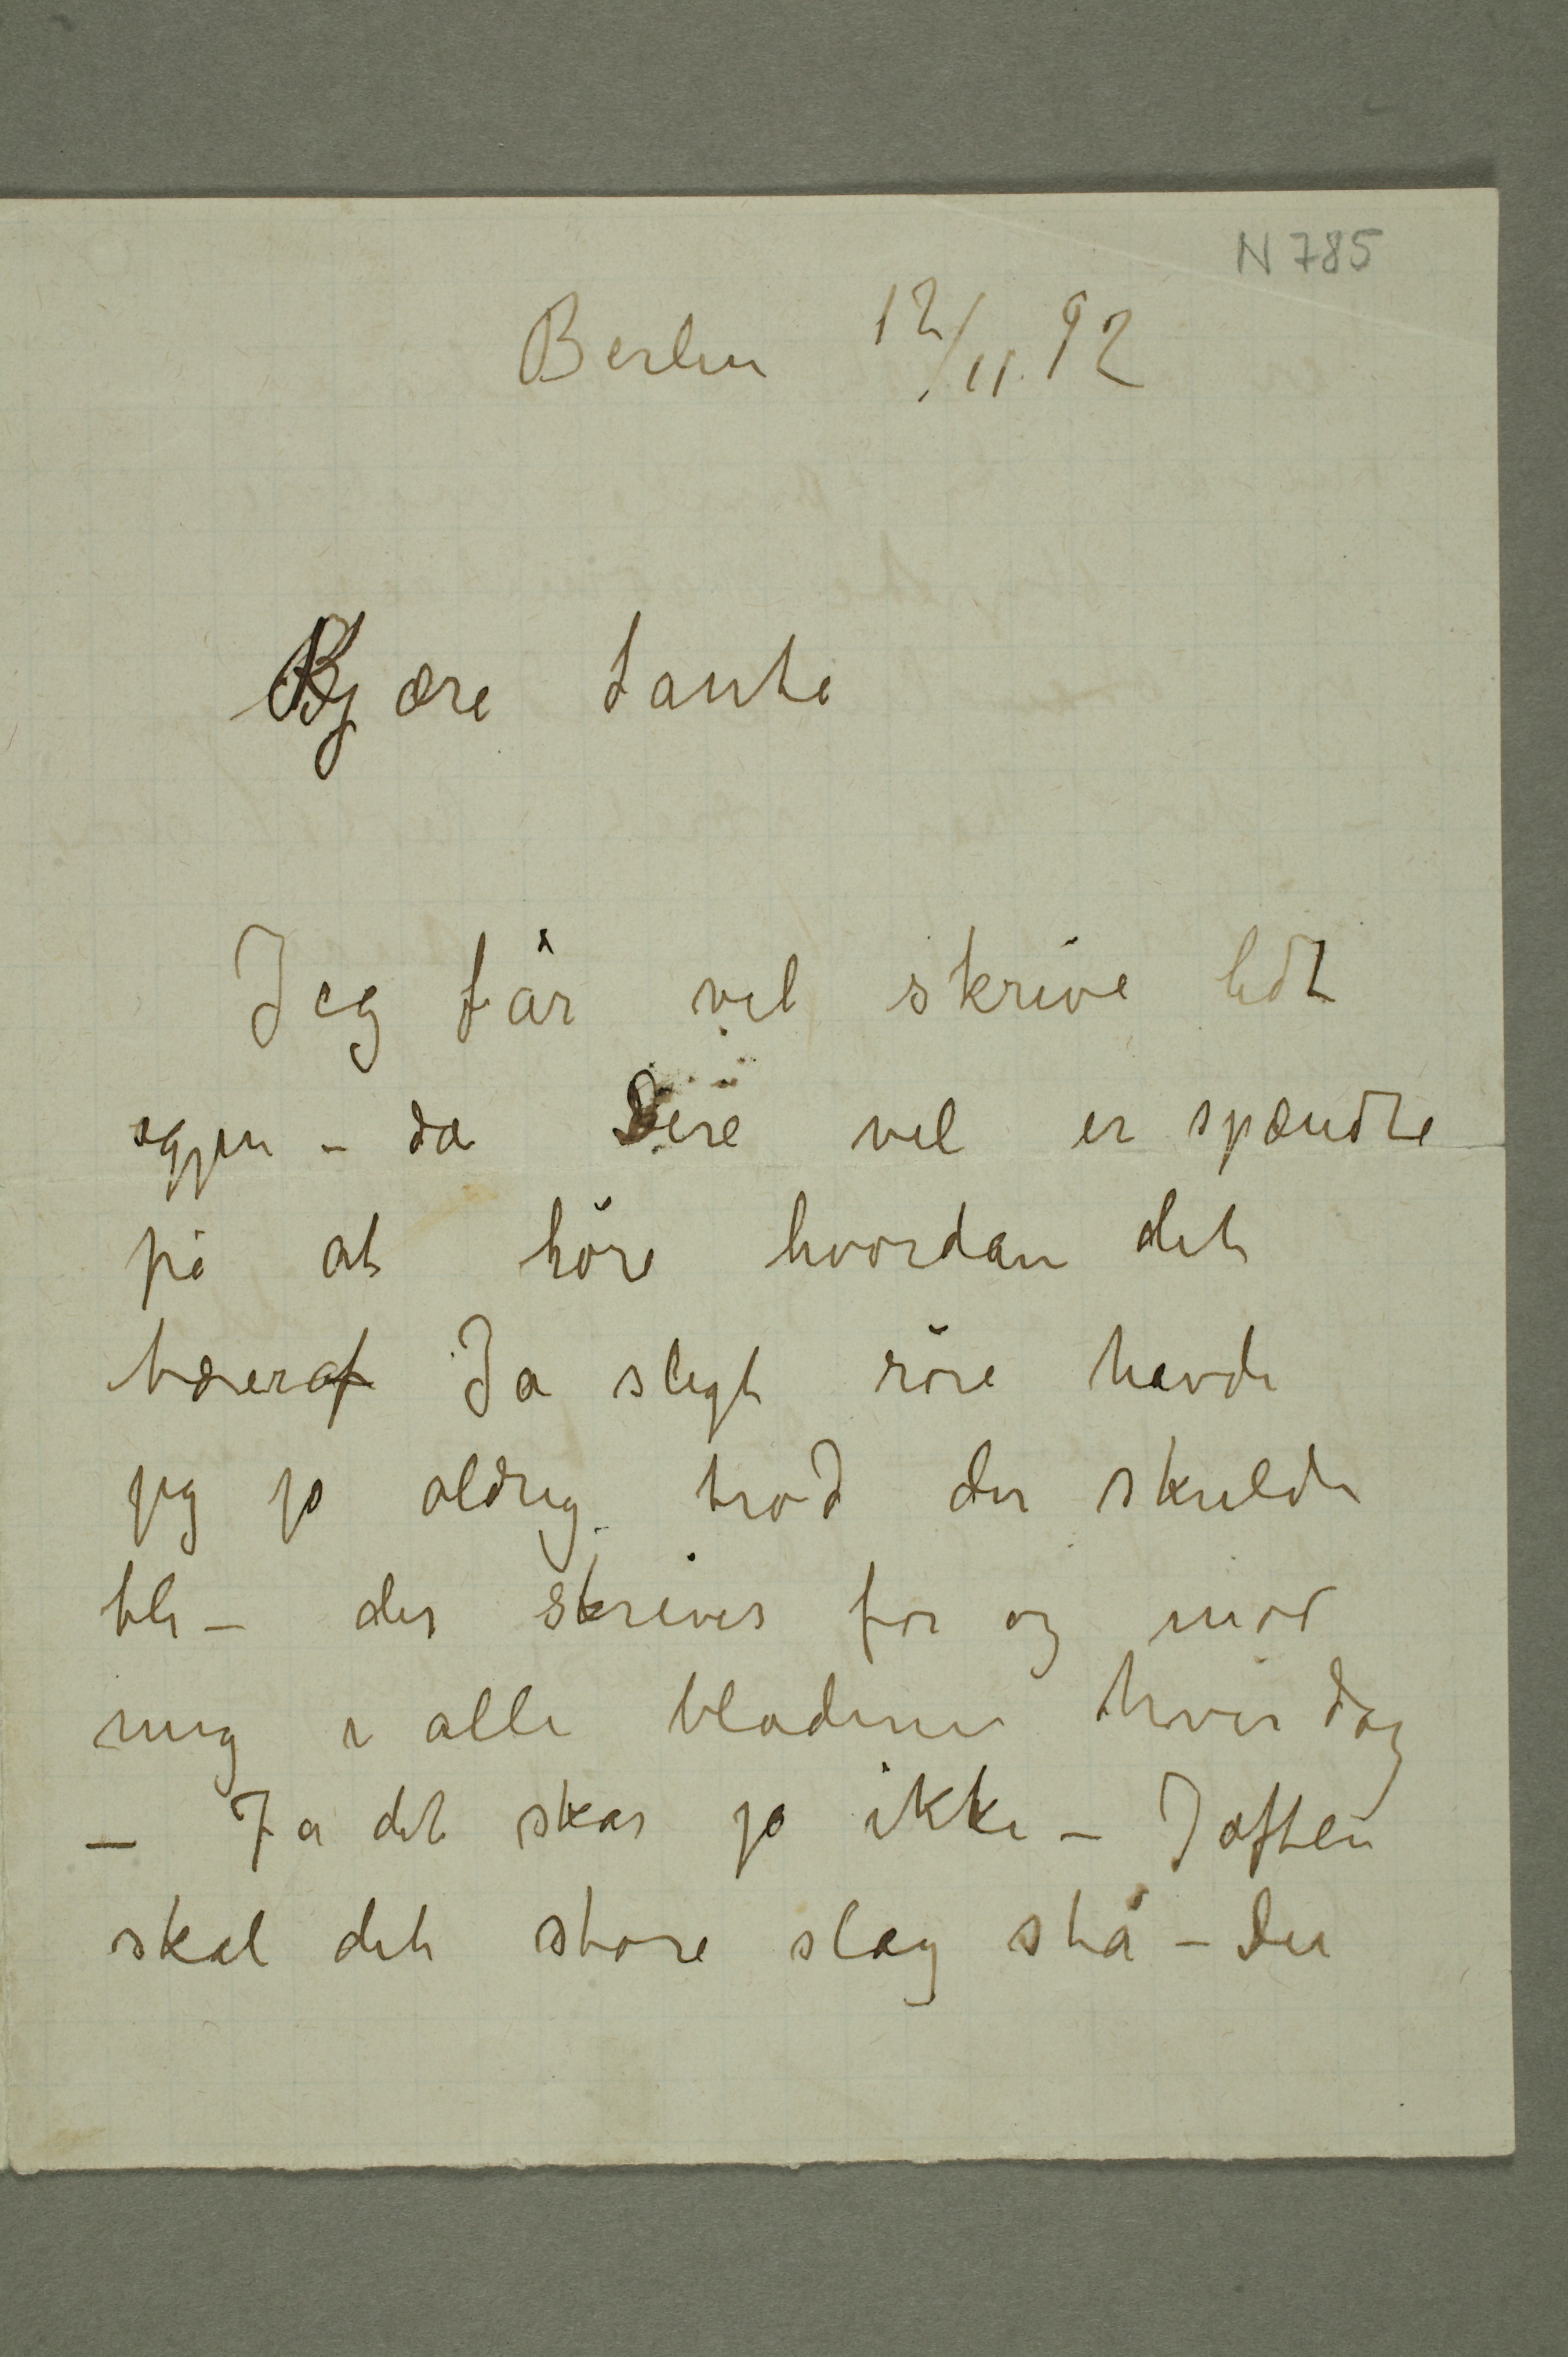 N 785
Berlin 12/11 92
Kjære tante
Jeg får vel skrive lidt
igjen – da Dere vel er spændte
på at höre hvordan det
bærer af Ja sligt röre havde
jeg jo aldrig trod der skulde
bli – der skrives for og mod
mig i alle bladene hver dag
– Ja det skar jo ikke – Iaften
skal det store slag stå – Der